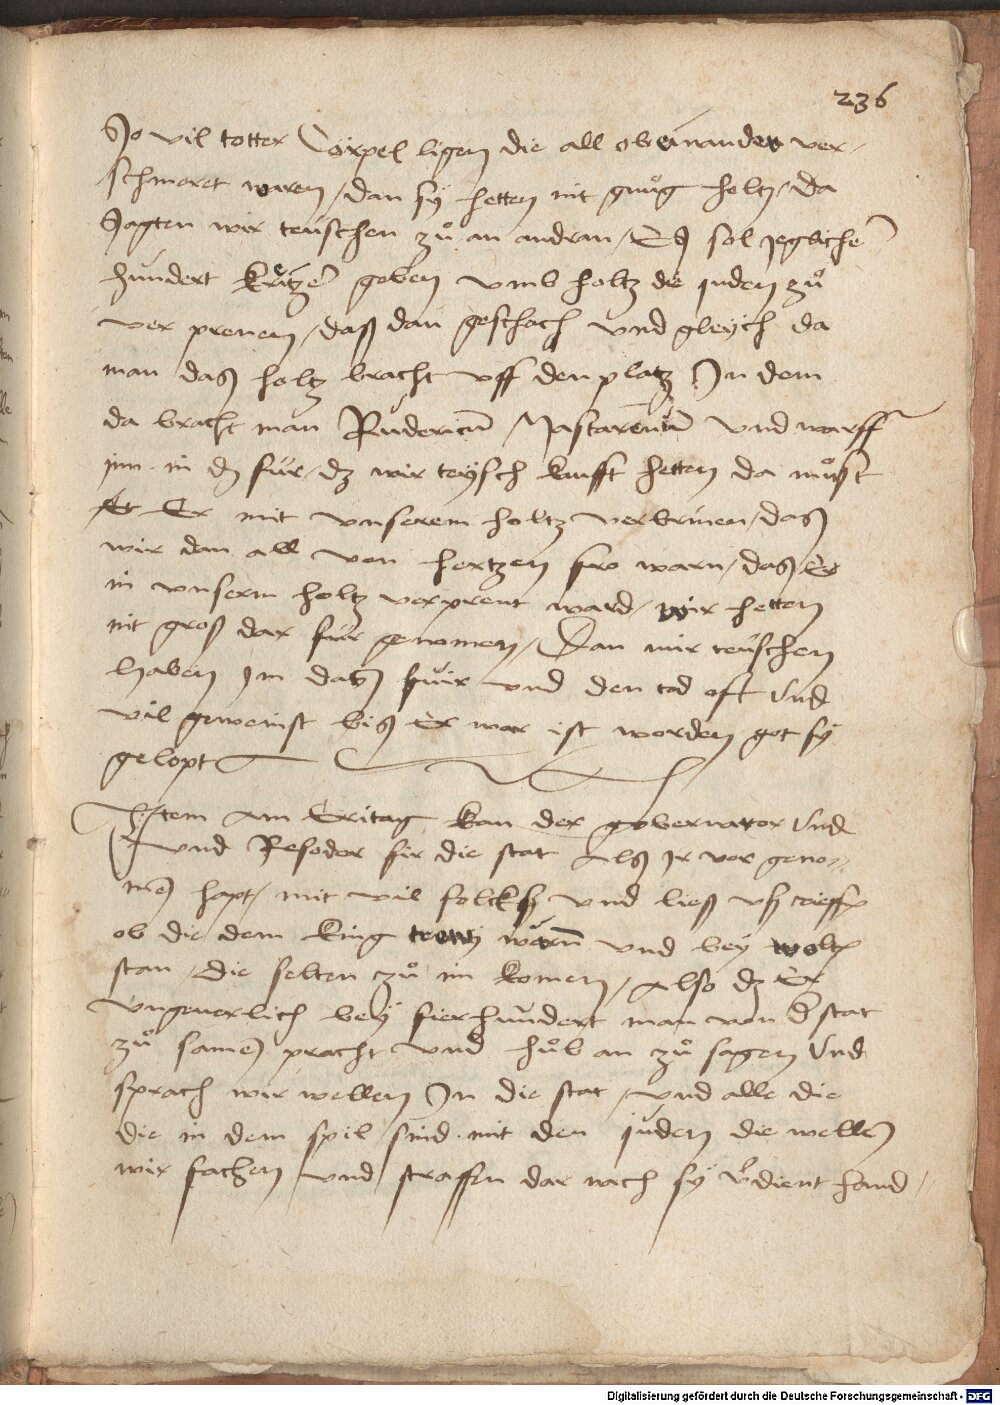 236
So vil totter Cörpel ligen die all obeinander ver
schmoret waren / dan sÿ hetten nit gnůg holtz / da
sagten wir teüschen zů an andran / Es sol jegliche
hundert Krützer geben vmb holtz die juden zů
ver prenen / daß dan geschach vnd gleÿch da
man das holtz bracht vff den platz In dem
da bracht man Rudericū Mastarenū vnd warff
jnn in dz für / dz wir teÿsch kaufft hetten da můst
Er mit vnserem holtz verbrinen / das
wir dan all von hertzen fro warn / das Er
in vnserm holtz verprent ward / wir hetten
nit groß dar für genomen / Dan mir teüschen
haben Im das fuir vnd den tod oft vnd
vil geweinst bis Er war ist worden got sÿ
gelopt
Item Am Eritag kan der gobernator vnd
vnd Resodor fir die stat Als Ir vor geno-
mē hapt / mit vil folcks vnd ließ vß rieffē
ob die dem king
stan / die selten zů im komen / Also dz Er
vngeuerlich beÿ fierhundert man von d stat
zů samē pracht vnd hůb an zů sagen vnd
sprach wir wellen In die stat / vnd alle die
die in dem spil sind mit den juden die wellē
wir fachen vnd straffen dar nach sÿ vdient hand
Digitalisierung gefördert durch die Deutsche Forschungsgemeinschaft - DFG